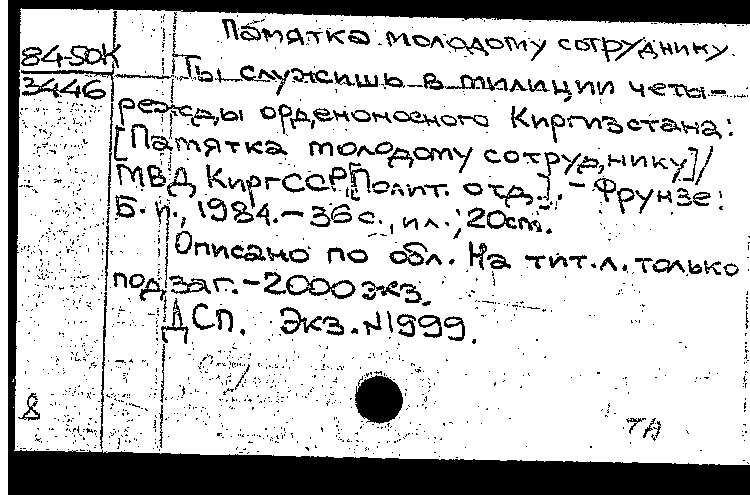 Памятка молодому сотруднику.
84-50К
3446
Ты служишь в милиции четы-
режды орденоносного Киргизстана:
[Памятка молодому сотруднику]/
МВД КиргССР, [Полит. отд.]. - Фрунзе:
Б. и., 1984. - 36 с., ил.; 20 cm.
Описано по обл. На тит. л. только
подзаг. - 2000 экз.
ДСП. Экз. N 1999.
8
ТА